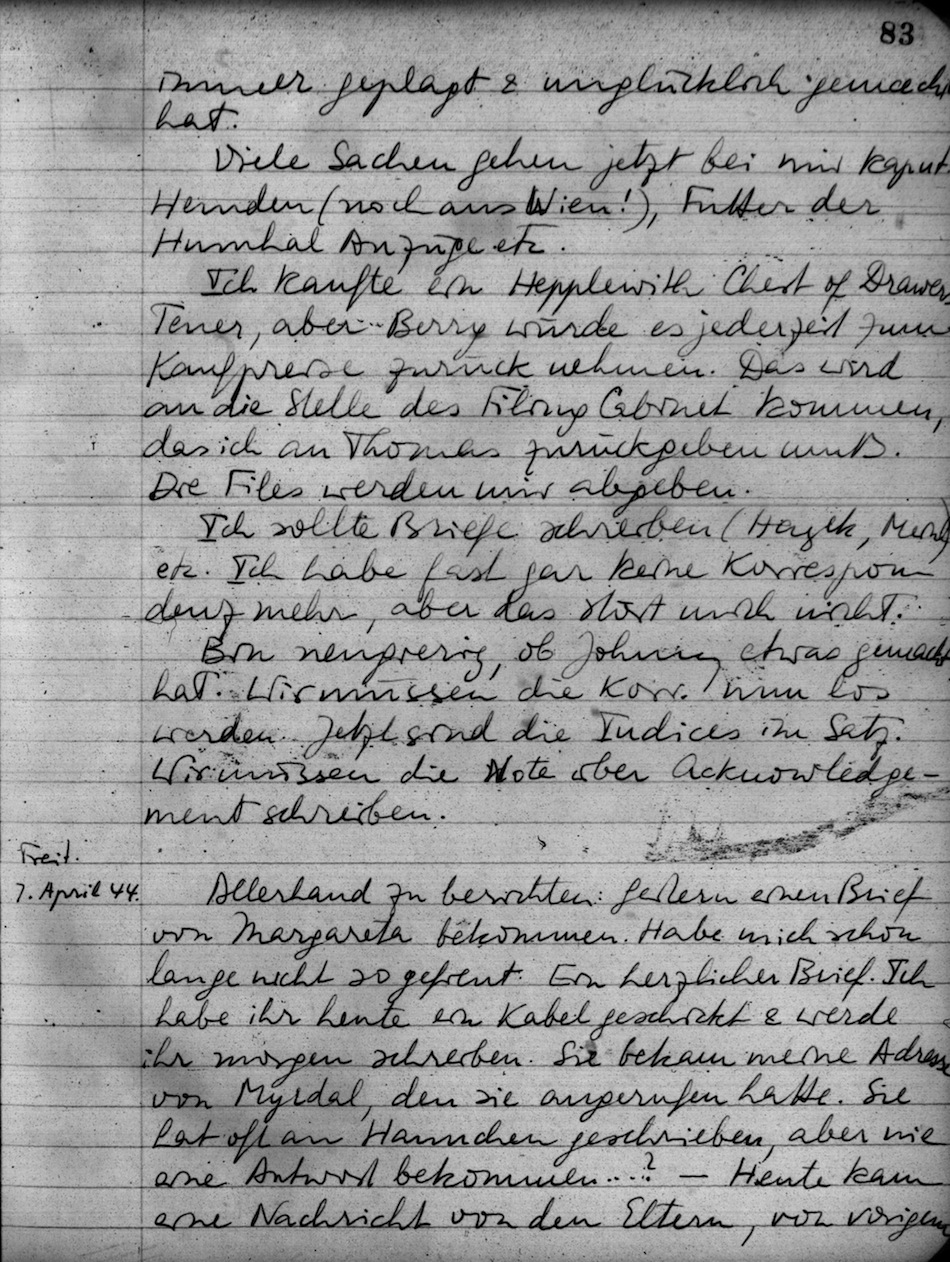 83
immer geplagt & unglücklich gemacht
hat.
Viele Sachen gehen jetzt bei mir kaput.
Hemden (noch aus Wien!), Futter der
Humhal Anzüge etc.
Ich kaufte ein Hepplewith Chest of Drawers
Teuer, aber Berry würde es jederzeit zum
Kaufpreise zurück nehmen. Das wird
an die Stelle des Filing Cabinet kommen,
das ich an Thomas zurückgeben muß.
Die Files werden wir abgeben.
Ich sollte Briefe schreiben (Hayek,
etc. Ich habe fast gar keine Korrespon
denz mehr, aber das stört mich nicht.
Bin neugierig, ob Johnny etwas gemacht
hat. Wir müssen die Korr. nun los
werden. Jetzt sind die Indices im Satz.
Wir müssen die Note über Acknowledge-
ment schreiben.
Freit.
7. April 44.
Allerhand zu berichten: Gestern einen Brief
von Margareta bekommen. Habe mich schon
lange nicht so gefreut. Ein herzlicher Brief. Ich
habe ihr heute ein Kabel geschickt & werde
ihr morgen schreiben. Sie bekam meine Adresse
von Myrdal, den sie angerufen hatte. Sie
hat oft an Hannchen geschrieben, aber nie
eine Antwort bekommen....? — Heute kam
eine Nachricht von den Eltern, von vorigem